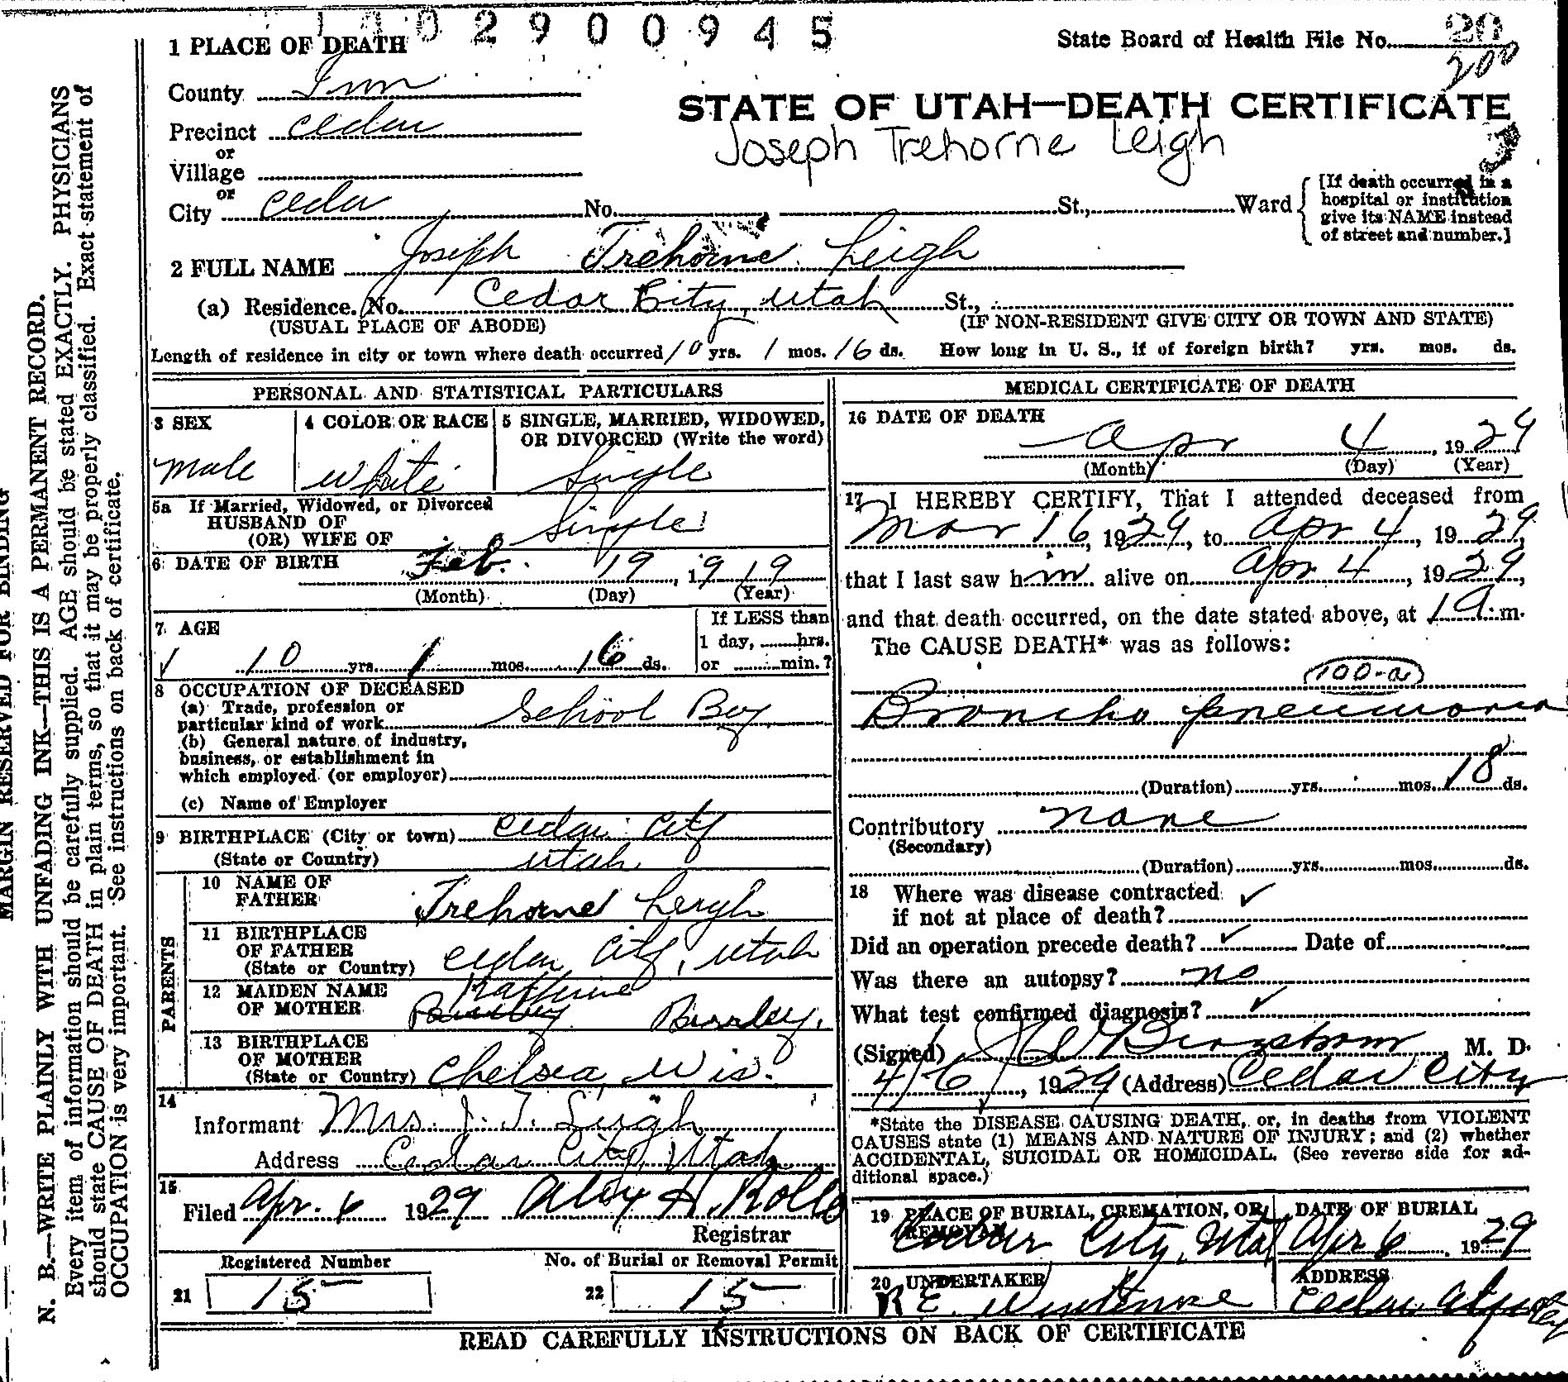 1 1 0 2 9 0 0 9 4 5
1 PLACE OF DEATH
State Board of Health File No. 20
200
County Iron
STATE OF UTAH—DEATH CERTIFICATE
Precinct Cedar
Joseph Trehorne Leigh
or
Village
or
City Cedar No. St., Ward
[If death occurred in a
hospital or institution
give its NAME instead
of street and number.]
2 FULL NAME Joseph Trehorne Leigh
(a) Residence. No. Cedar City, Utah St.,
(USUAL PLACE OF ABODE) (IF NON-RESIDENT GIVE CITY OR TOWN AND STATE)
Length of residence in city or town where death occurred 10 yrs. 1 mos. 16 ds. How long in U. S., if of foreign birth? yrs. mos. ds.
PERSONAL AND STATISTICAL PARTICULARS
3 SEX
male
4 COLOR OR RACE
White
5 SINGLE, MARRIED, WIDOWED,
OR DIVORCED (Write the word)
Single
5a If Married, Widowed, or Divorced
HUSBAND OF
(OR) WIFE OF Single
6 DATE OF BIRTH Feb. 19, 1919
(Month) (Day) (Year)
7 AGE
10 yrs. 1 mos. 16 ds.
If LESS than
1 day, hrs.
or min.?
8 OCCUPATION OF DECEASED
(a) Trade, profession or
particular kind of work School Boy
(b) General nature of industry,
business, or establishment in
which employed (or employer)
(c) Name of Employer
9 BIRTHPLACE (City or town) Cedar City
(State or Country) Utah
PARENTS
10 NAME OF
FATHER Trehorne Leigh
11 BIRTHPLACE
OF FATHER
(State or Country) Cedar City, Utah
12 MAIDEN NAME
OF MOTHER Katherine
13 BIRTHPLACE
OF MOTHER
(State or Country) Chelsea, Wis.
14
Informant Mrs. J. T. Leigh
Address Cedar City, Utah
15
Filed Apr. 6 1929 Alex H. Rollo
Registrar
Registered Number
21 15
No. of Burial or Removal Permit
22 15
MEDICAL CERTIFICATE OF DEATH
16 DATE OF DEATH
Apr 4, 1929
(Month) (Day) (Year)
17 I HEREBY CERTIFY, That I attended deceased from
Mar 16, 1929, to Apr 4, 1929,
that I last saw him alive on Apr 4, 1929,
and that death occurred, on the date stated above, at 1 a.m.
The CAUSE DEATH* was as follows:
100-a
Broncho pneumonia
(Duration) yrs. mos. 18 ds.
Contributory none
(Secondary)
(Duration) yrs. mos. ds.
18 Where was disease contracted
if not at place of death?
Did an operation precede death? Date of
Was there an autopsy? no
What test confirmed diagnosis?
(Signed) Bergstrom M. D.
4/6, 1929 (Address) Cedar City
*State the DISEASE CAUSING DEATH, or, in deaths from VIOLENT
CAUSES state (1) MEANS AND NATURE OF INJURY; and (2) whether
ACCIDENTAL, SUICIDAL OR HOMICIDAL. (See reverse side for ad-
ditional space.)
19 PLACE OF BURIAL, CREMATION, OR
REMOVAL
Cedar City, Utah
DATE OF BURIAL
Apr 6 1929
20 UNDERTAKER
ADDRESS
Cedar City
READ CAREFULLY INSTRUCTIONS ON BACK OF CERTIFICATE
MARGIN RESERVED FOR BINDING
N. B.—WRITE PLAINLY WITH UNFADING INK—THIS IS A PERMANENT RECORD.
Every item of information should be carefully supplied. AGE should be stated EXACTLY. PHYSICIANS
should state CAUSE OF DEATH in plain terms, so that it may be properly classified. Exact statement of
OCCUPATION is very important. See instructions on back of certificate.